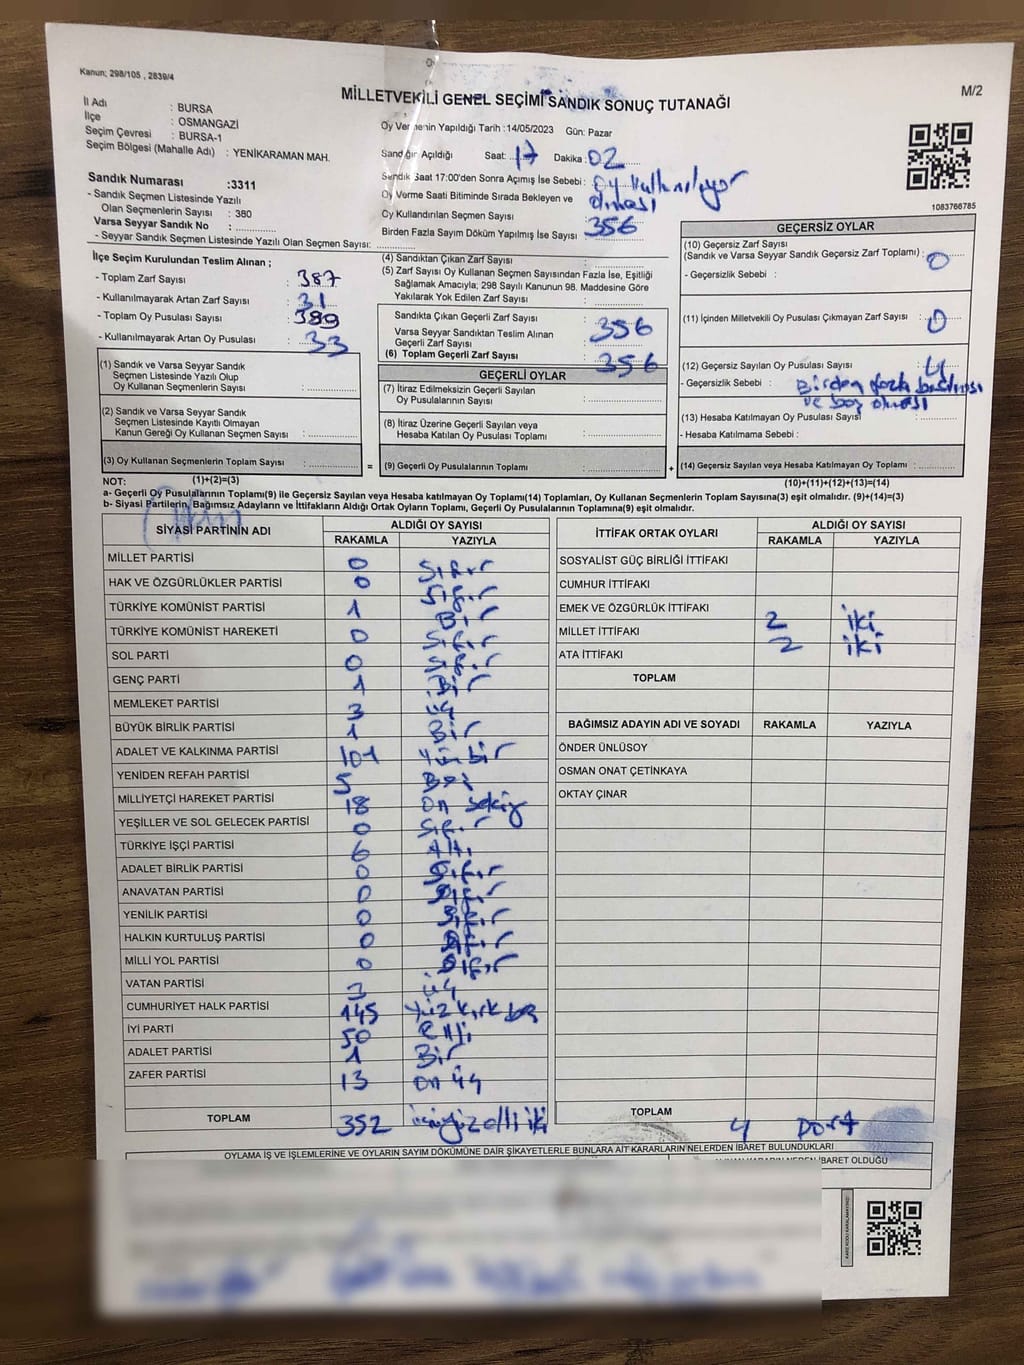 Kanun; 298/105 , 2839/4
MİLLETVEKİLİ GENEL SEÇİMİ SANDIK SONUÇ TUTANAĞI
M/2
İl Adı : BURSA
İlçe : OSMANGAZİ
Seçim Çevresi : BURSA-1
Seçim Bölgesi (Mahalle Adı) : YENİKARAMAN MAH.
Oy Vermenin Yapıldığı Tarih :14/05/2023 Gün: Pazar
Sandığın Açıldığı Saat: 17 Dakika: 02
Sandık Saat 17:00'den Sonra Açımış İse Sebebi: Oy kullanılıyor
Oy Verme Saati Bitiminde Sırada Bekleyen ve olması
Oy Kullandırılan Seçmen Sayısı
Birden Fazla Sayım Döküm Yapılmış İse Sayısı : 356
1083766785
Sandık Numarası :3311
- Sandık Seçmen Listesinde Yazılı
Olan Seçmenlerin Sayısı : 380
Varsa Seyyar Sandık No :
- Seyyar Sandık Seçmen Listesinde Yazılı Olan Seçmen Sayısı:
İlçe Seçim Kurulundan Teslim Alınan ;
- Toplam Zarf Sayısı : 387
- Kullanılmayarak Artan Zarf Sayısı : 31
- Toplam Oy Pusulası Sayısı : 389
- Kullanılmayarak Artan Oy Pusulası : 33
(1) Sandık ve Varsa Seyyar Sandık
Seçmen Listesinde Yazılı Olup
Oy Kullanan Seçmenlerin Sayısı :
(2) Sandık ve Varsa Seyyar Sandık
Seçmen Listesinde Kayıtlı Olmayan
Kanun Gereği Oy Kullanan Seçmen Sayısı :
(3) Oy Kullanan Seçmenlerin Toplam Sayısı :
(4) Sandıktan Çıkan Zarf Sayısı :
(5) Zarf Sayısı Oy Kullanan Seçmen Sayısından Fazla İse, Eşitliği
Sağlamak Amacıyla; 298 Sayılı Kanunun 98. Maddesine Göre
Yakılarak Yok Edilen Zarf Sayısı :
Sandıkta Çıkan Geçerli Zarf Sayısı : 356
Varsa Seyyar Sandıktan Teslim Alınan
Geçerli Zarf Sayısı :
(6) Toplam Geçerli Zarf Sayısı : 356
GEÇERLİ OYLAR
(7) İtiraz Edilmeksizin Geçerli Sayılan
Oy Pusulalarının Sayısı :
(8) İtiraz Üzerine Geçerli Sayılan veya
Hesaba Katılan Oy Pusulası Toplamı :
= (9) Geçerli Oy Pusulalarının Toplamı :
GEÇERSİZ OYLAR
(10) Geçersiz Zarf Sayısı
(Sandık ve Varsa Seyyar Sandık Geçersiz Zarf Toplamı) : 0
- Geçersizlik Sebebi :
(11) İçinden Milletvekili Oy Pusulası Çıkmayan Zarf Sayısı : 0
(12) Geçersiz Sayılan Oy Pusulası Sayısı : 4
- Geçersizlik Sebebi : Birden fazla basılması
ve boş olması
(13) Hesaba Katılmayan Oy Pusulası Sayısı :
- Hesaba Katılmama Sebebi :
+ (14) Geçersiz Sayılan veya Hesaba Katılmayan Oy Toplamı :
NOT: (1)+(2)=(3) (10)+(11)+(12)+(13)=(14)
a- Geçerli Oy Pusulalarının Toplamı(9) ile Geçersiz Sayılan veya Hesaba katılmayan Oy Toplamı(14) Toplamları, Oy Kullanan Seçmenlerin Toplam Sayısına(3) eşit olmalıdır. (9)+(14)=(3)
b- Siyasi Partilerin, Bağımsız Adayların ve İttifakların Aldığı Ortak Oyların Toplamı, Geçerli Oy Pusulalarının Toplamına(9) eşit olmalıdır.
SİYASİ PARTİNİN ADI ALDIĞI OY SAYISI
RAKAMLA YAZIYLA
MİLLET PARTİSİ 0 Sıfır
HAK VE ÖZGÜRLÜKLER PARTİSİ 0 Sıfır
TÜRKİYE KOMÜNİST PARTİSİ 1 Bir
TÜRKİYE KOMÜNİST HAREKETİ 0 Sıfır
SOL PARTİ 0 Sıfır
GENÇ PARTİ 1 Bir
MEMLEKET PARTİSİ 3 üç
BÜYÜK BİRLİK PARTİSİ 1 Bir
ADALET VE KALKINMA PARTİSİ 101 yüz bir
YENİDEN REFAH PARTİSİ 5 Beş
MİLLİYETÇİ HAREKET PARTİSİ 18 On sekiz
YEŞİLLER VE SOL GELECEK PARTİSİ 0 Sıfır
TÜRKİYE İŞÇİ PARTİSİ 6 Altı
ADALET BİRLİK PARTİSİ 0 Sıfır
ANAVATAN PARTİSİ 0 Sıfır
YENİLİK PARTİSİ 0 Sıfır
HALKIN KURTULUŞ PARTİSİ 0 Sıfır
MİLLİ YOL PARTİSİ 0 Sıfır
VATAN PARTİSİ 3 üç
CUMHURİYET HALK PARTİSİ 145 yüz kırk beş
İYİ PARTİ 50 Elli
ADALET PARTİSİ 1 Bir
ZAFER PARTİSİ 13 on üç
TOPLAM 352 üçyüz elli iki
İTTİFAK ORTAK OYLARI ALDIĞI OY SAYISI
RAKAMLA YAZIYLA
SOSYALİST GÜÇ BİRLİĞİ İTTİFAKI
CUMHUR İTTİFAKI
EMEK VE ÖZGÜRLÜK İTTİFAKI 2 iki
MİLLET İTTİFAKI 2 iki
ATA İTTİFAKI
TOPLAM
BAĞIMSIZ ADAYIN ADI VE SOYADI RAKAMLA YAZIYLA
ÖNDER ÜNLÜSOY
OSMAN ONAT ÇETİNKAYA
OKTAY ÇINAR
TOPLAM 4 Dört
OYLAMA İŞ VE İŞLEMLERİNE VE OYLARIN SAYIM DÖKÜMÜNE DAİR ŞİKAYETLERLE BUNLARA AİT KARARLARIN NELERDEN İBARET BULUNDUKLARI
İBARET OLDUĞU